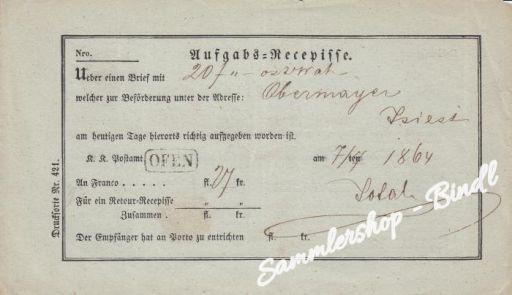 Nro.
Aufgabs-Recepisse.
Ueber einen Brief mit 207
welcher zur Beförderung unter der Adresse: Obermayer
am heutigen Tage hierorts richtig aufgegeben worden ist.
K. K. Postamt OFEN am 7/ 1864
An Franco . . . . . fl. 27 kr.
Für ein Retour-Recepisse " "
Zusammen . fl. kr.
Der Empfänger hat an Porto zu entrichten fl. kr.
Drucksorte Nr. 421.
Sammlershop - Bindl